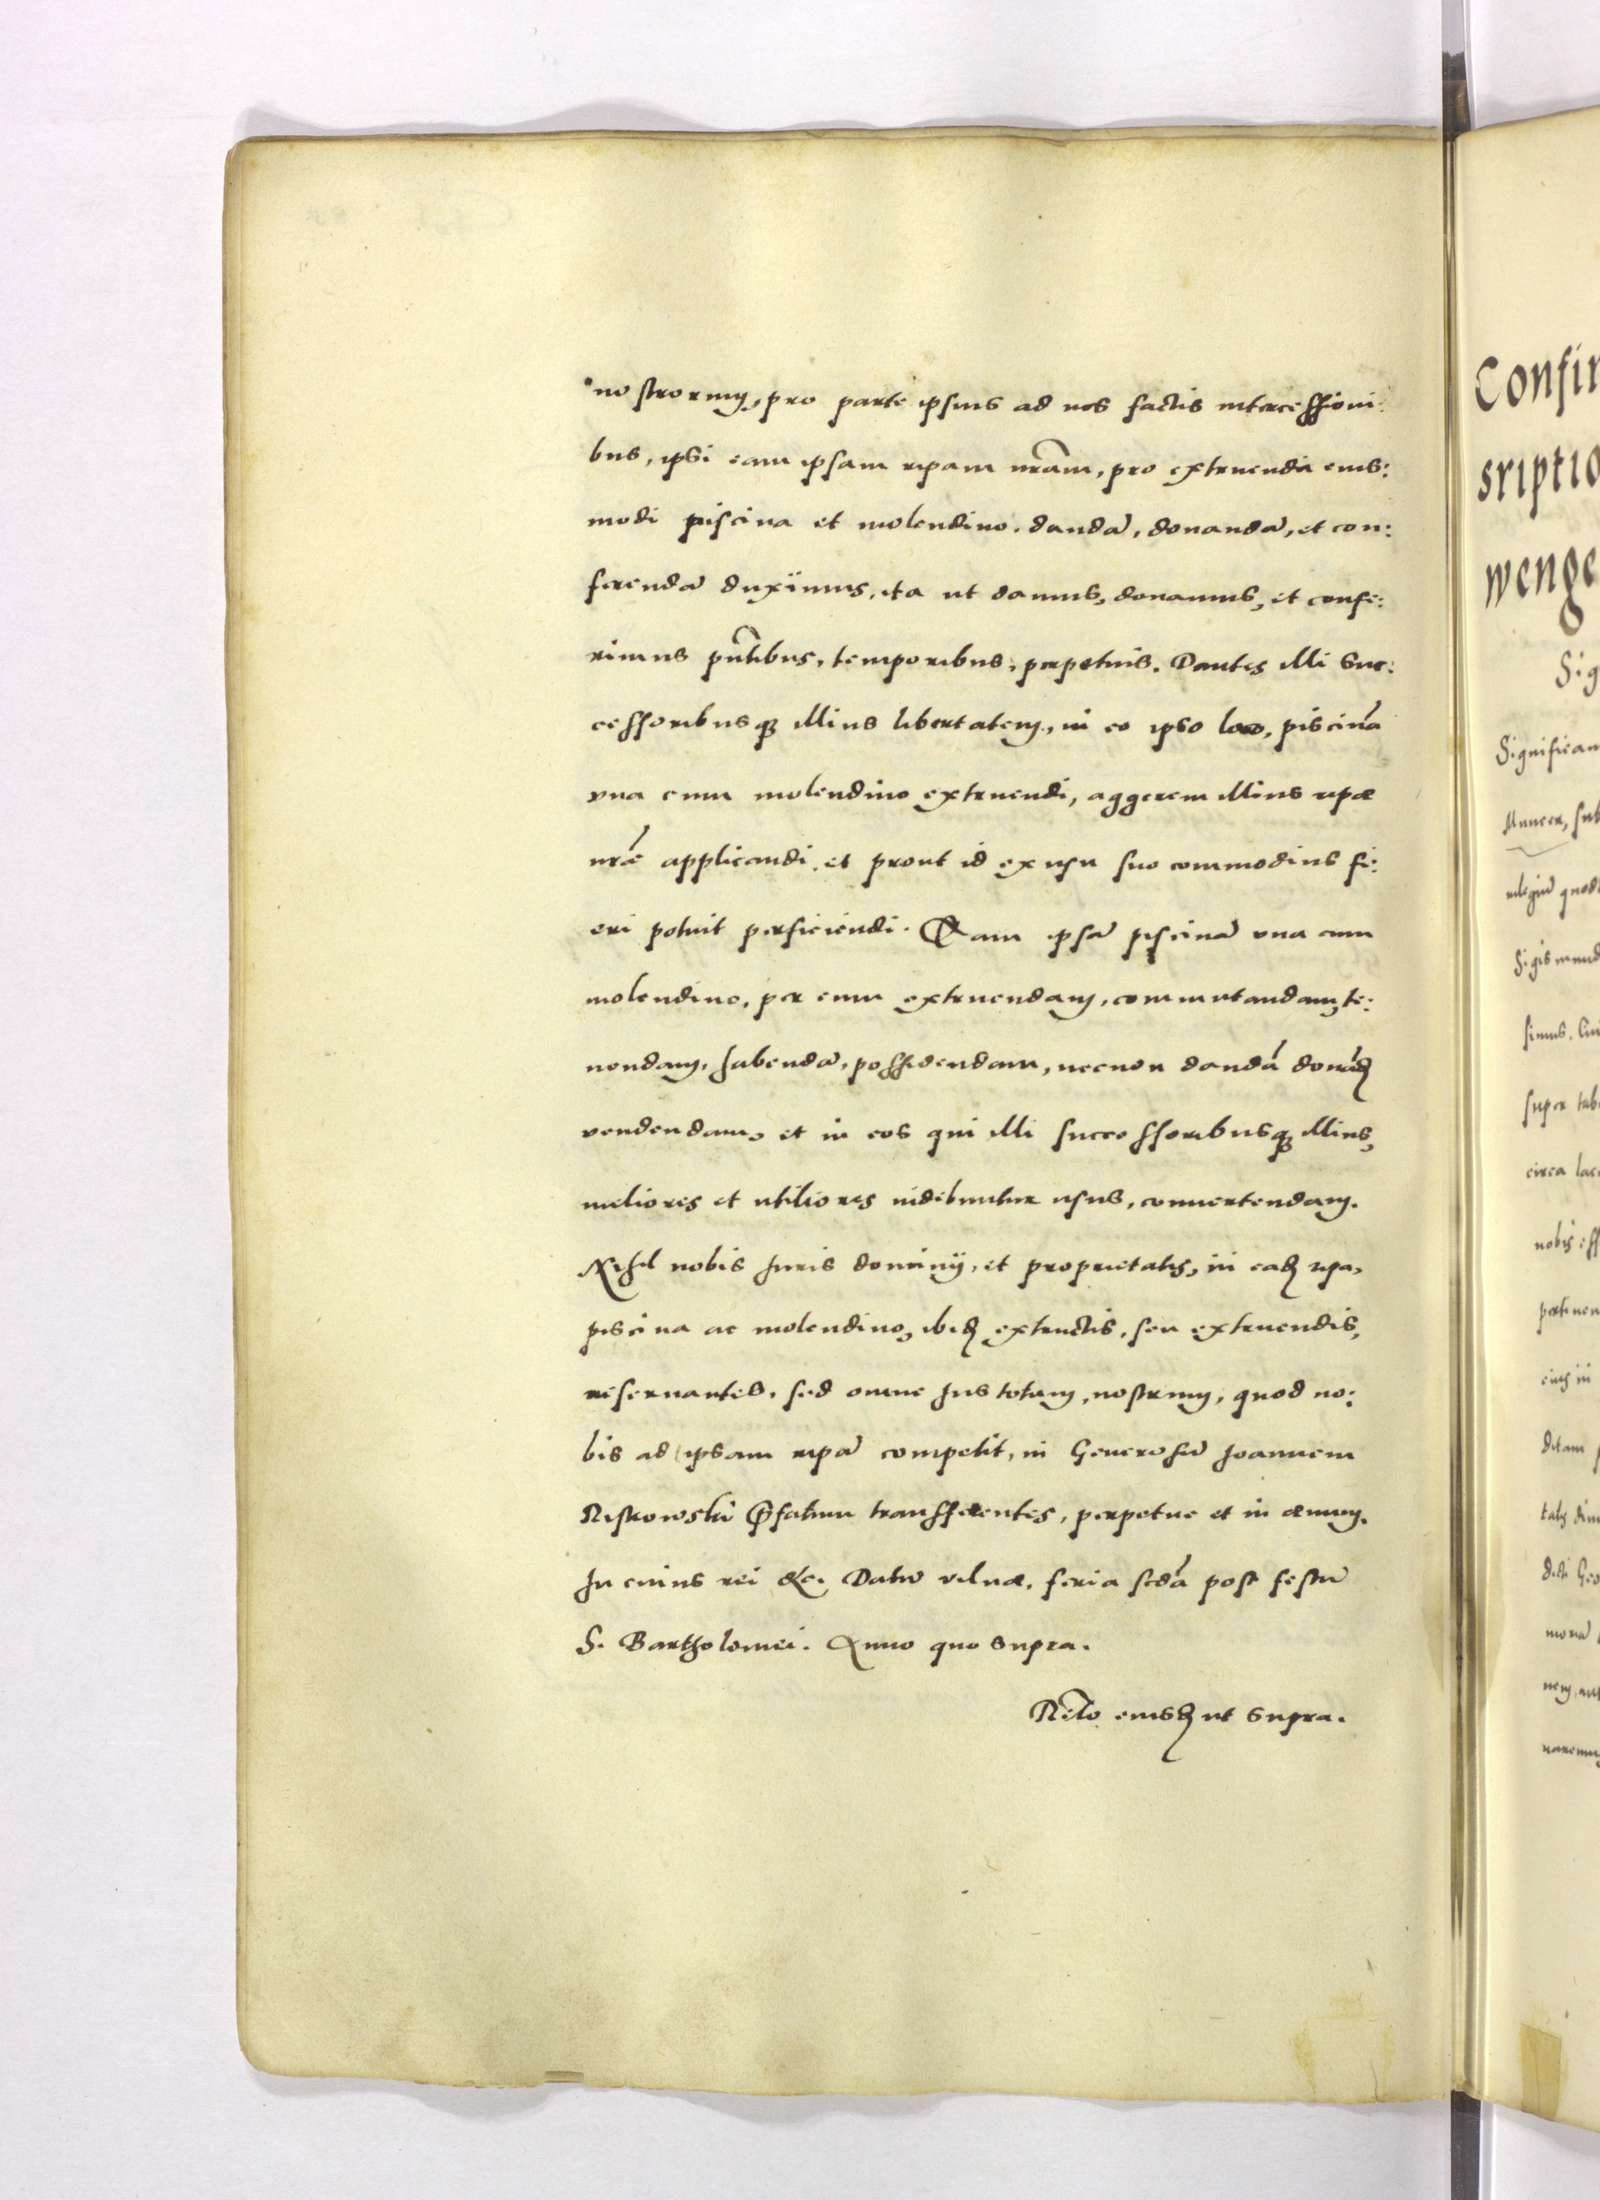 nostrorum, pro parte ipsius ad nos factis intercessioni:
bus, ipsi eam ipsam ripam nrãm, pro extruenda eius:
modi piscina et molendino. dandã, donandã, et con:
ferendã duximus, ita ut damus, donamus, et confe:
rimus pñtibus, temporibus, perpetuis. Dantes illi suc:
cessoribusq3 illius libertatem, in eo ipso loco, piscinã
vna cum molendino extruendi, aggerem illius ripæ
nræ̃ applicandi, et prout id ex usu suo commodius fi:
eri potuit perficiendi. Quam ipsã piscinã vna cum
molendino, per eum extruendam, commutandam, te:
nendam, habendã, possidendam, necnon dandã donãd
vendendam, et in eos qui illi successoribusq3 illius,
meliores et utiliores uidebuntur usus, conuertendam.
Nihil nobis Juris dominij, et proprietatis, in ead ripa,
piscina ac molendino, ibid extructis, seu extruendis,
reseruantes, sed omne Jus totum, nostrum, quod no:
bis ad ipsam ripã competit, in Generosũ Joannem
Niskowski p̃fatum transfferentes, perpetue et in æuum.
In cuius rei &c. Datũ vilnæ, feria scdã post festũ
S. Bartholomei. Anno quo supra.
Rẽlo eiusd ut supra.
Confir
sriptio
wenge
Sig
Significam
Muneer, sub
uilegiũ quod
Sigismund
simus. Cui
super tab
circa lac
nobis ess
pertinen
eius in
ditam
talis dim
dicti Geo
monã
nem, aut
naremus